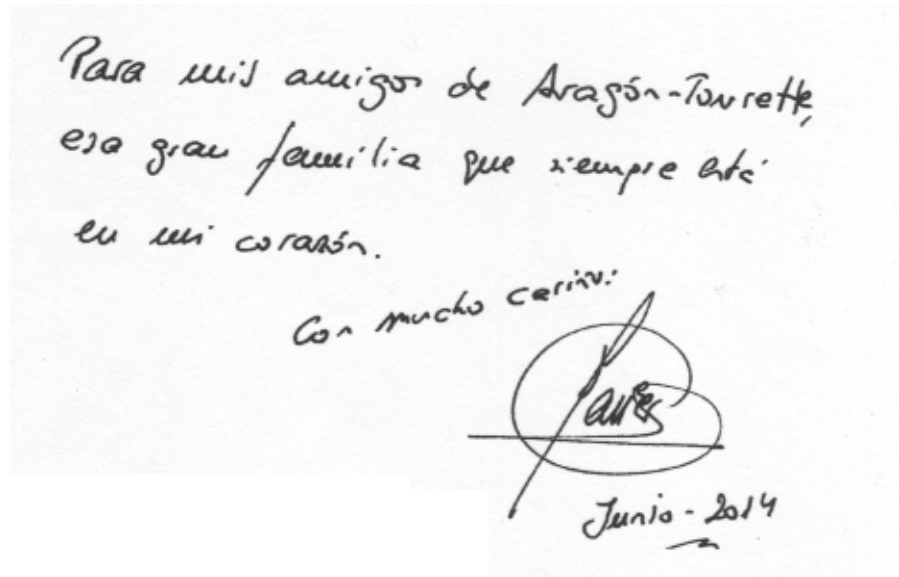 Para mis amigos de Aragón-Tourette,
esa gran familia que siempre está
en mi corazón.
Con mucho cariño:
Junio - 2014